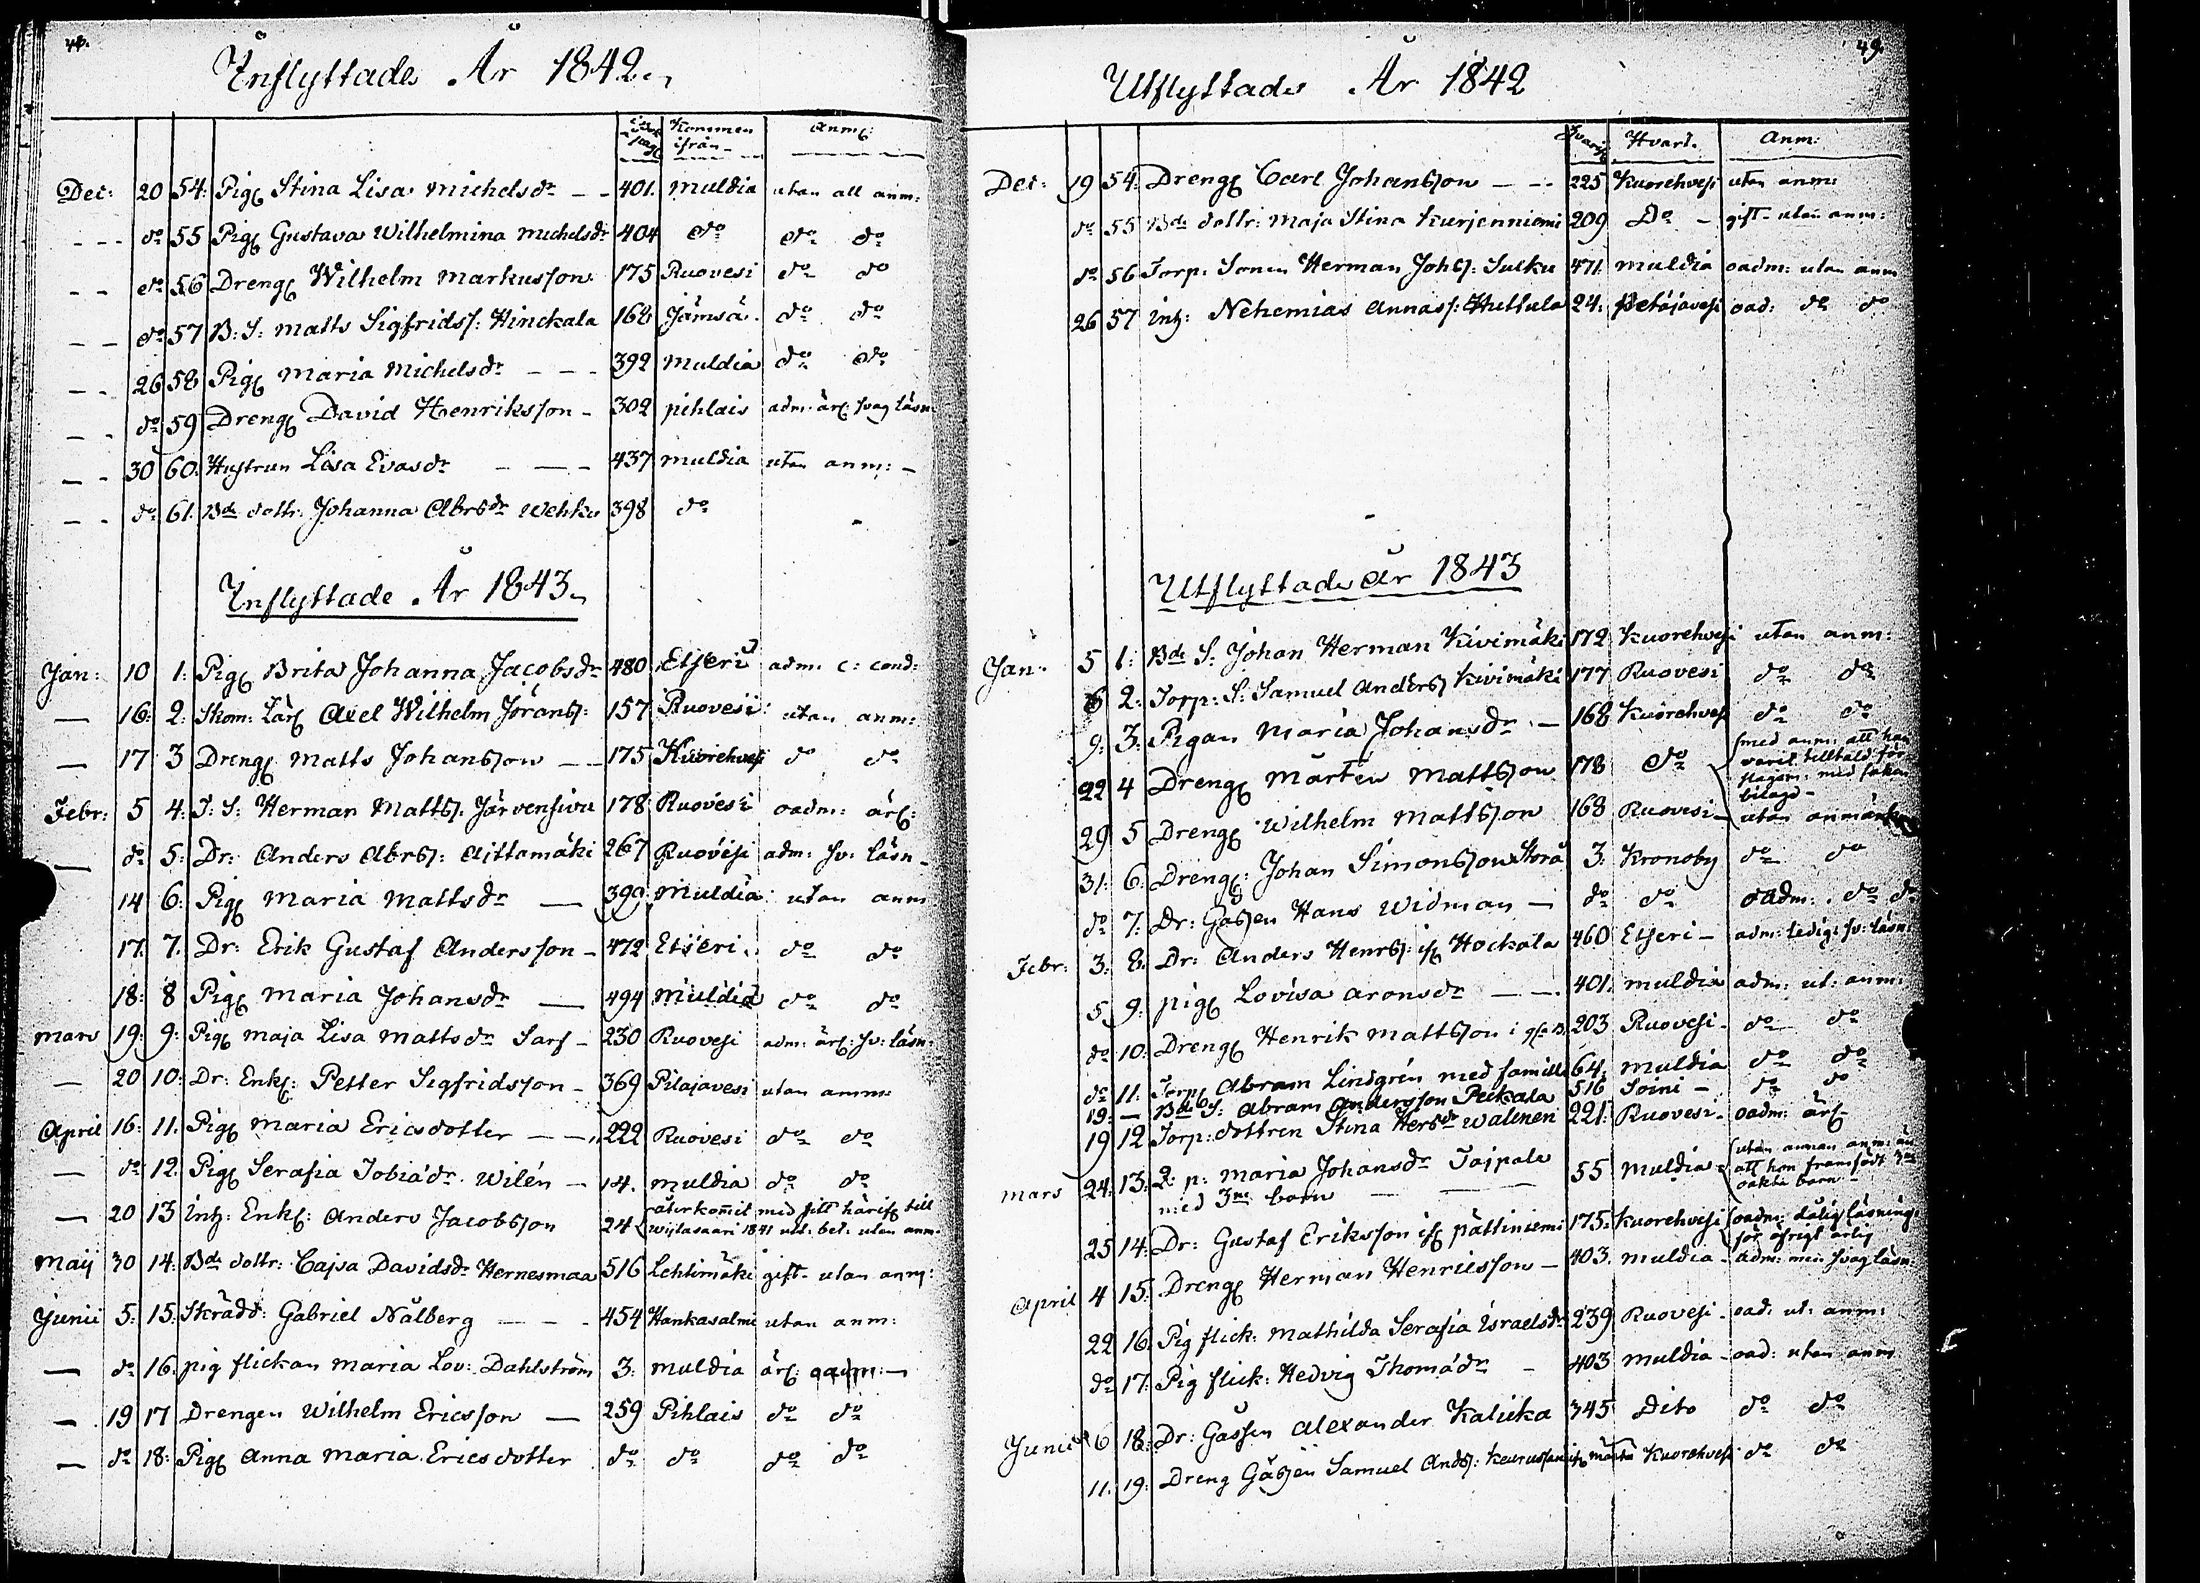 48.
Inflyttade År 1842
Kommen ifrån
Anm:
Dec: 20 54: Pig. Stina Lisa Michelsdr 401. Muldia utan all anm:
do 55 Pig. Gustava Wilhelmina Michelsdr 404 do do do
do 56 Dreng. Wilhelm Markusson 175 Ruovesi do do
do 57 B: S: Matts Sigfridss: Hinckala 168 Jämsä do do
26 58 Pig. Maria Michelsdr 392 Muldia do do
do 59 Dreng. David Henriksson 302 pihlais adm: ärl: svag läsn:
30 60: Hustrun Lisa Evasdr 437 Muldia utan anm:
do 61. Bde dottr: Johanna Abrsdr Wehku 398 do
Inflyttade År 1843
Jan: 10 1: Pig. Brita Johanna Jacobsdr 480 Etseri adm: c: cond:
16: 2: Skom: Lärl Axel Wilhelm Jöranss: 157 Ruovesi utan anm:
17 3 Dreng. Matts Johansson 175 Kuorehvesi do do
Febr: 5 4: T: S: Herman Matts: Järvensivu 178 Ruovesi oadm: ärl:
do 5: Dr: Anders Abrs: Aittamäki 267 Ruovesi adm: sv: läsn
14 6: Pig. Maria Mattsdr 399: Muldia utan anm
17. 7: Dr: Erik Gustaf Andersson 472 Etseri do do
18: 8 Pig. Maria Johansdr 494 Muldia do do
Mars 19: 9: Pig. Maja Lisa Mattsdr Sarf 230 Ruovesi adm: ärl: sv: läsn:
20 10: Dr: Enkl: Petter Sigfridsson 369 Pilajavesi utan anm:
April 16: 11. Pig. Maria Ericsdotter 222 Ruovesi do do
do 12. Pig. Serafia Tobiädr Wilén 14. Muldia do do
20 13 inh: Enkl: Anders Jacobsson 24 återkomit med sitt härifr till
Wijtasaari 1841 utan anm:
Maij 30 14: Bde dottr: Cajsa Davidsdr Hernesmaa 516 Lehtimäki gift utan anm:
Junii 5: 15: Skrädd: Gabriel Nålberg 454 Hankasalmi utan anm:
do 16: pig flickan Maria Lov: Dahlström 3: Muldia ärl: oadm:
19 17 Drengen Wilhelm Ericsson 259 Pihlais do do
do 18: Pig. Anna Maria Ericsdotter do do do do
49.
Utflyttade År 1842
Hvart.
Anm:
Dec: 19 54: Dreng. Carl Johansson 225 Kuorehvesi utan anm:
do 55 Bde dottr: Maja Stina Kurjenniemi 209 Do gift utan anm:
do 56 Torp: Sonen Herman Johs: Sulku 471 Muldia oadm: utan anm
26 57 inh: Nehemias Annass: Huttula 24: Petäjävesi oad: do do
Utflyttade År 1843
Jan: 5 1: Bde S: Johan Herman Kivimäki 172 Kuorehvesi utan anm:
6 2: Torp: S: Samuel Anders Kivimäki 177 Ruovesi do do
9: 3: Pigan Maria Johansdr 168 Kuorehvesi do do
22 4 Dreng. Mårten Mattsson 178 do med anm: att han
varit tilltald för
bilagd
29 5 Dreng. Wilhelm Mattsson 168 Ruovesi utan anmärkn
31: 6: Dreng: Johan Simonsson Storå 3: Kronoby do do
do 7: Dr: Gåssen Hans Widman do do oadm: do do
Febr: 3: 8: Dr: Anders Henrs: ifr Hockala 460 Etseri adm: ledig: sv: läsn:
5 9: pig. Lovisa Aronsdr 401. Muldia adm: ut: anm:
do 10: Dreng. Henrik Mattsson 203 Ruovesi do do
do 11: Torp. Abram Lindgrén med famille 64: Muldia do do
19: Bde S: Abram Andersson Peckala 516 Soini do do
19 12 Torp: dottren Stina Hersdr Walenen 221: Ruovesi oadm: ärl
Mars 24: 13: Q: p: Maria Johansdr Taipale 55 Muldia utan annan anm: än
att hon framfödt 3ne
oäkta barn
med 3ne barn
25 14: Dr: Gustaf Eriksson ifr pättiniemi 175: Kuorehvesi oadm: dålig läsning
för öfrigt ärlig
April 4 15: Dreng. Herman Henriksson 403. Muldia adm: svag läsn:
22 16: Pig flick: Mathilda Serafia Israelsdr 239 Ruovesi oad: ut: anm:
do 17: Pig flick: Hedvig Thomädr 403 Muldia oad: utan anm
Junii 6 18: Dr: Gåssen Alexander Kalicka 345 Dito do do
11: 19: Dreng Gåssen Samuel Ands: Keurusfanit Kuorehvesi do do